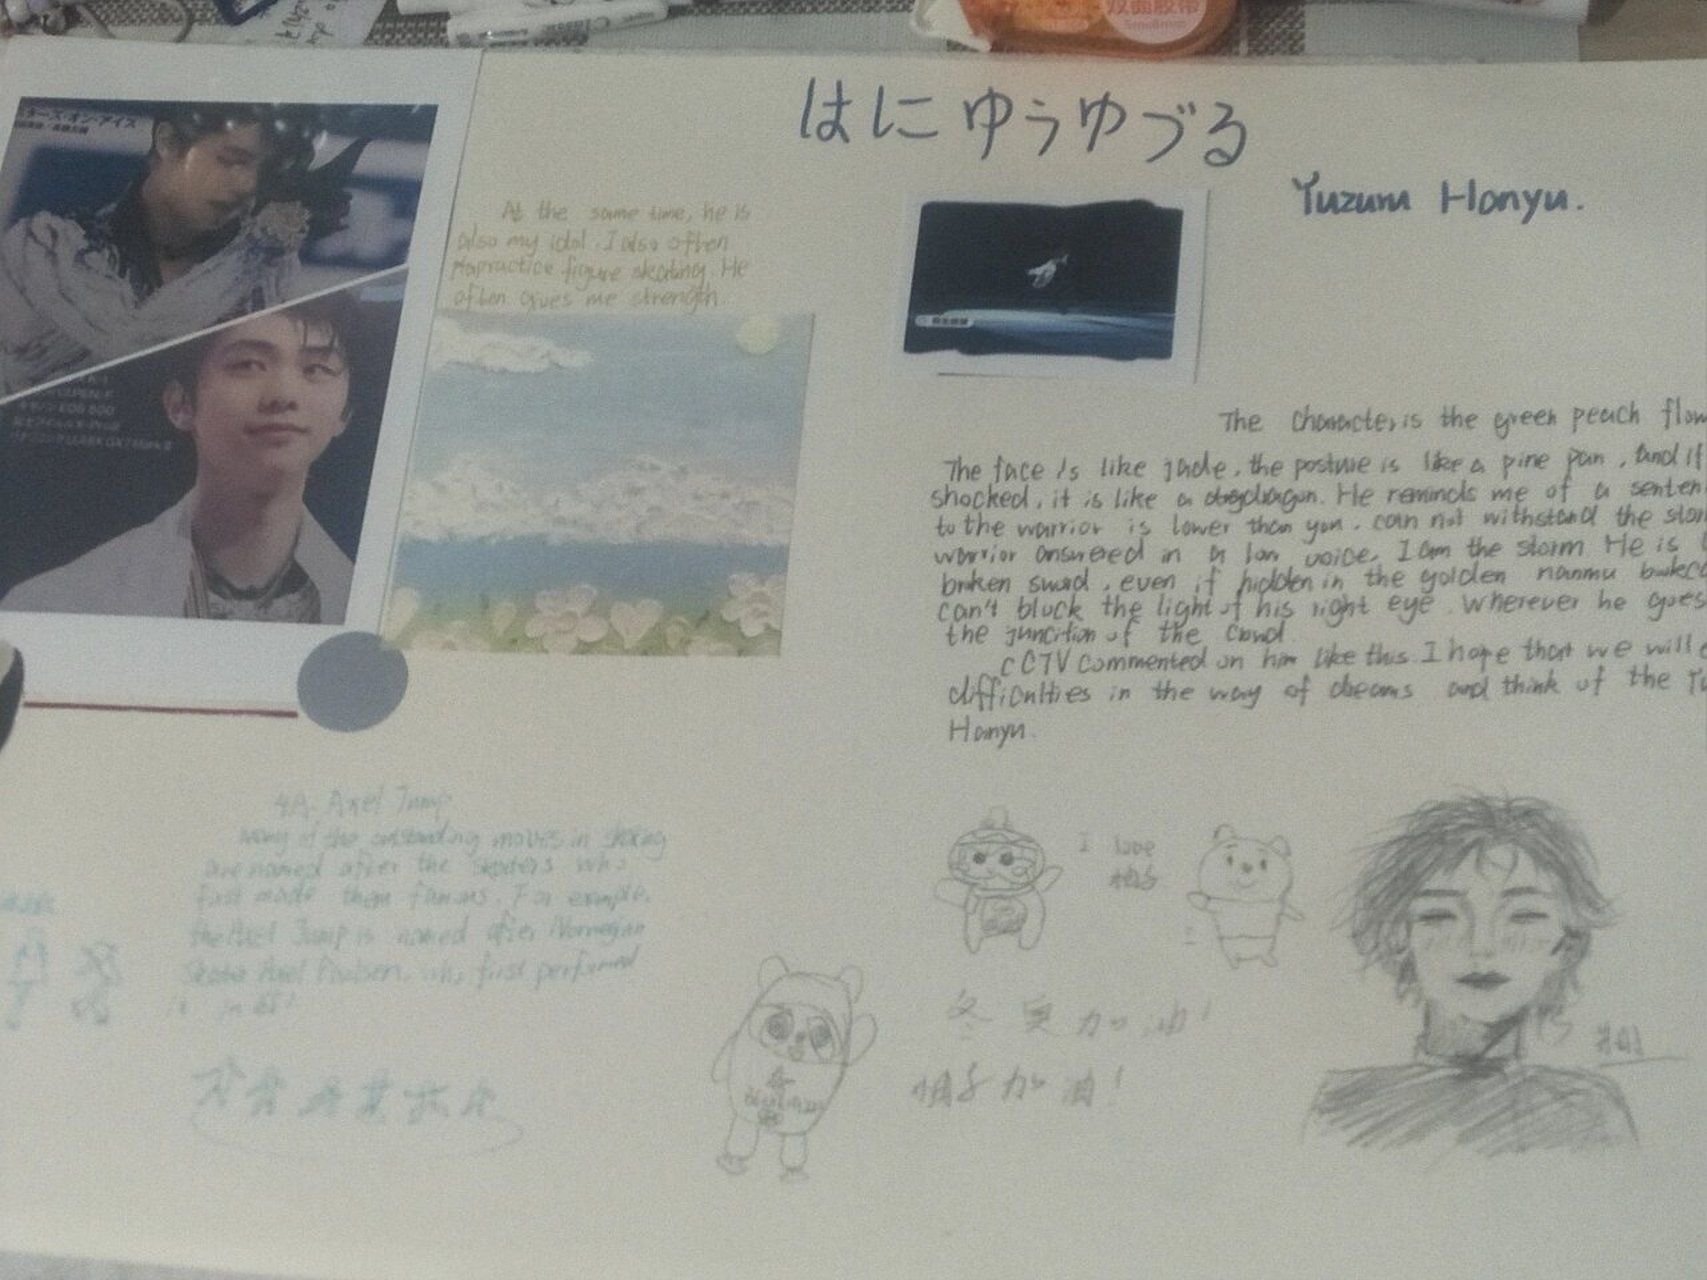 双面胶带
Smallness
ターズ・オン・アイス
はにゆうゆづる
Yuzuru Hanyu.
At the same time, he is
also my idol. I also often
practice figure skating. He
often gives me strength.
The Character is the green peach flow
The face is like jade, the posture is like a pine pan, and if
shocked, it is like a dragon. He reminds me of a senten
to the warrior is lower than you, can not withstand the sto
warrior answered in a low voice, I am the storm He is
broken sword, even if hidden in the golden nanmu
can't block the light of his right eye. Wherever he goes
the junction of the Crowd
CCTV commented on him like this. I hope that we will
difficulties in the way of dreams and think of the Yu
Hanyu.
4A. Axel Jump
many of the outstanding moves in skating
are named after the skaters who
first made them famous. For example,
the Axel Jump is named after Norwegian
Skater Axel Paulsen, who first performed
it in
I love
柚子
冬奥加油!
柚子加油!